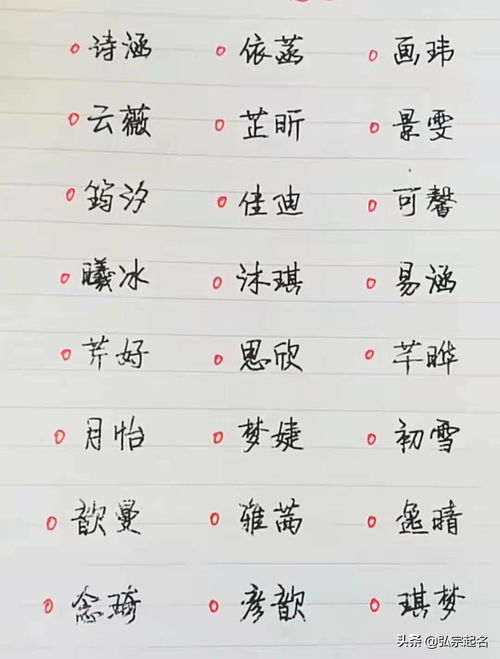 诗涵 依菡 画玮
云薇 芷昕 景雯
筠汐 佳迪 可馨
曦冰 沐琪 易涵
芹好 思欣 芊晔
月怡 梦婕 初雪
歆曼 雅茜 晴
念琦 彦歆 琪梦
头条 @弘宗起名